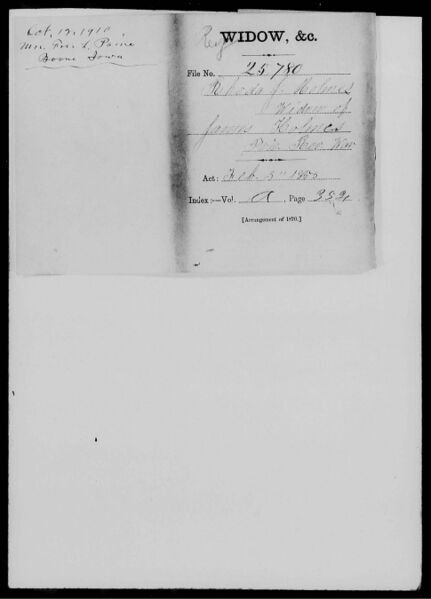 Oct. 19, 1910
Mrs. L. Paine
Boone Iowa
WIDOW, &c.
File No. 25,780
Rhoda J. Holmes
Widow of
James Holmes
Rev. War
Act: Feb 3" 1855
Index:—Vol. A, Page 352
[Arrangement of 1870.]